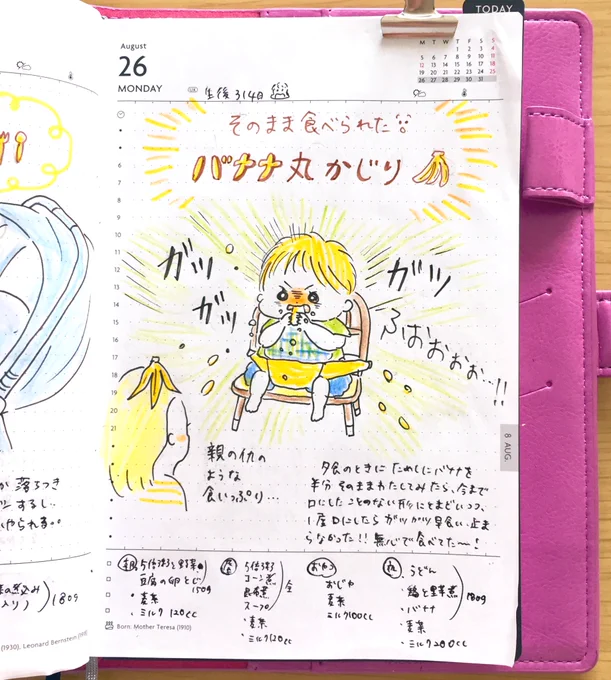 TODAY
August
26
MONDAY
生後314日
M T W T F S S
1 2 3 4
5 6 7 8 9 10 11
12 13 14 15 16 17 18
19 20 21 22 23 24 25
26 27 28 29 30 31
そのまま食べられた
バナナ丸かじり
ガツ
ガツ
ガツ
ふはおぉぉぉ…!!
6
7
8
9
10
11
12
13
14
15
16
17
18
19
20
21
親の仇の
ような
食いっぷり…
夕食のときに ためしにバナナを
半分 そのままわたしてみたら、今まで
口にしたことのない形にとまどいつつ、
1度口にしたら ガツガツ 早食い 止ま
らなかった!! 無心で食べてた〜!
8 AUG.
が 落ろつき
ツ するし..
いやられる..
煮込み
入り) 180g
朝 5倍粥と野菜
豆腐の卵とじ
150g
・麦茶
・ミルク 120cc
5倍粥
コーン煮
昆布煮
スープ
・麦茶
・ミルク120cc
全
おやつ
おじや
麦茶
ミルク100cc
夜
・うどん
・鶏と野菜煮
・バナナ
・麦茶
・ミルク200cc
180g
Born: Mother Teresa (1910)
(1930), Leonard Bernstein (1918)